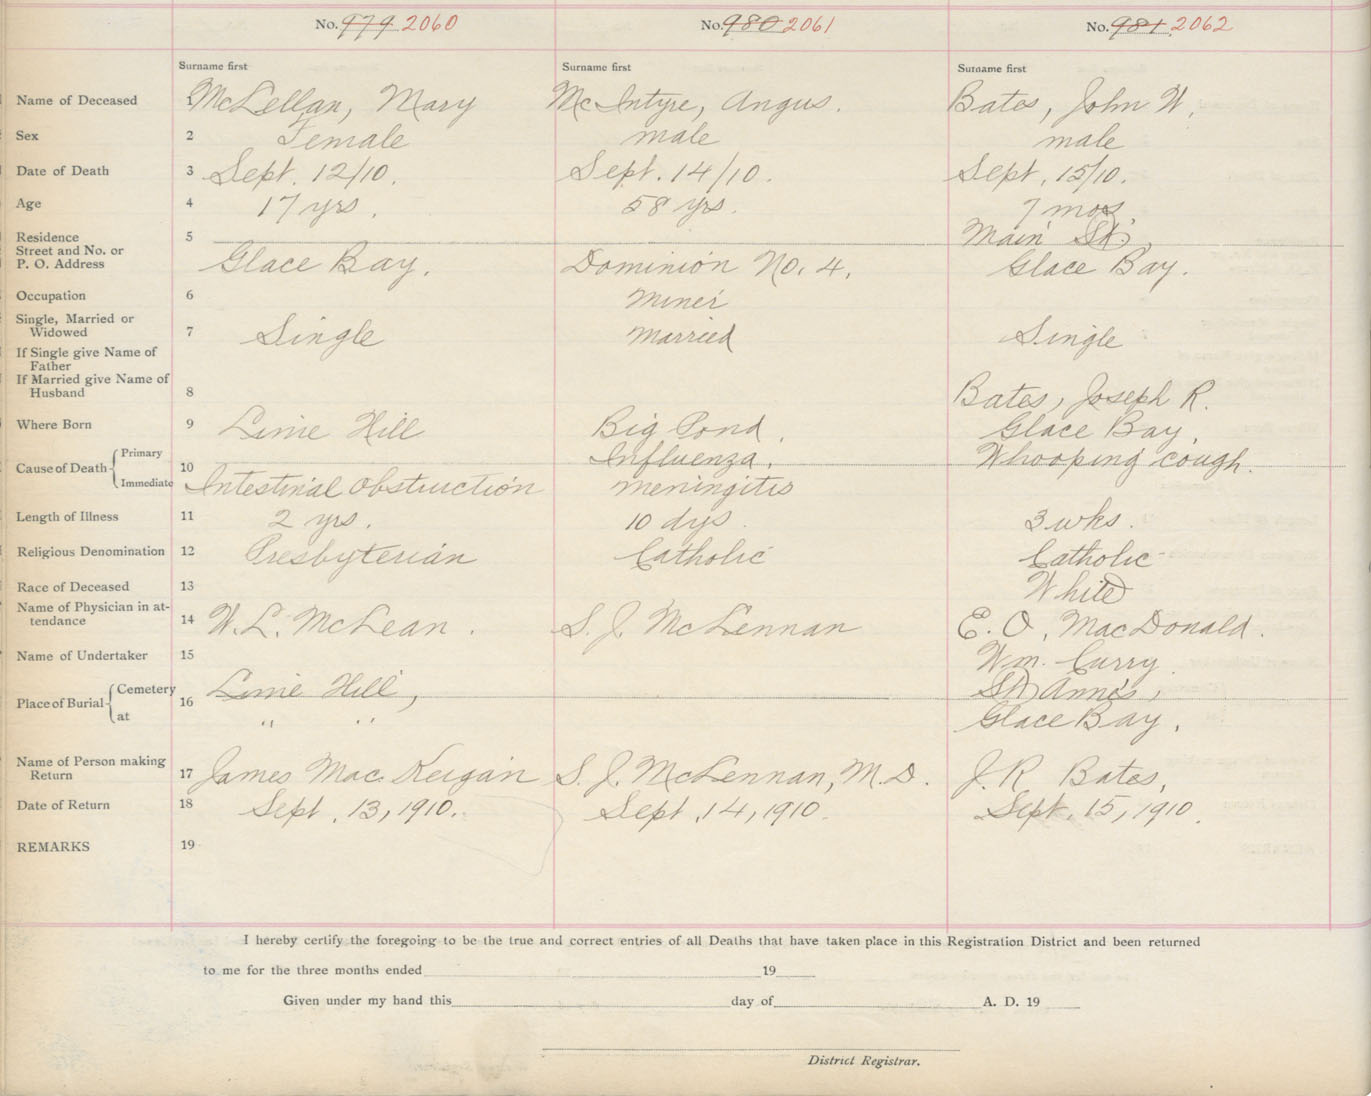 No. 979 2060 No. 980 2061 No. 981 2062
Surname first Surname first Surname first
Name of Deceased 1 McLellan, Mary McIntyre, Angus. Bates, John W.
Sex 2 Female male male
Date of Death 3 Sept. 12/10. Sept. 14/10. Sept. 15/10.
Age 4 17 yrs. 58 yrs. 7 mos.
Residence 5 Main St.,
Street and No. or
P. O. Address Glace Bay. Dominion No. 4. Glace Bay.
Occupation 6 Miner
Single, Married or
Widowed 7 Single Married Single
If Single give Name of
Father
If Married give Name of
Husband 8 Bates, Joseph R.
Where Born 9 Lime Hill Big Pond. Glace Bay.
Cause of Death Primary 10 Influenza. Whooping cough.
Immediate Intestinal obstruction meningitis
Length of Illness 11 2 yrs. 10 dys. 3 wks.
Religious Denomination 12 Presbyterian Catholic Catholic
Race of Deceased 13 White
Name of Physician in at-
tendance 14 W. L. McLean. S. J. McLennan E. O. MacDonald.
Name of Undertaker 15 Wm. Curry
Place of Burial Cemetery 16 Lime Hill, St Anne's,
at " " Glace Bay.
Name of Person making
Return 17 James Mac Keigan S. J. McLennan, M.D. J. R Bates,
Date of Return 18 Sept. 13, 1910. Sept. 14, 1910. Sept. 15, 1910.
REMARKS 19
I hereby certify the foregoing to be the true and correct entries of all Deaths that have taken place in this Registration District and been returned
to me for the three months ended 19
Given under my hand this day of A. D. 19
District Registrar.